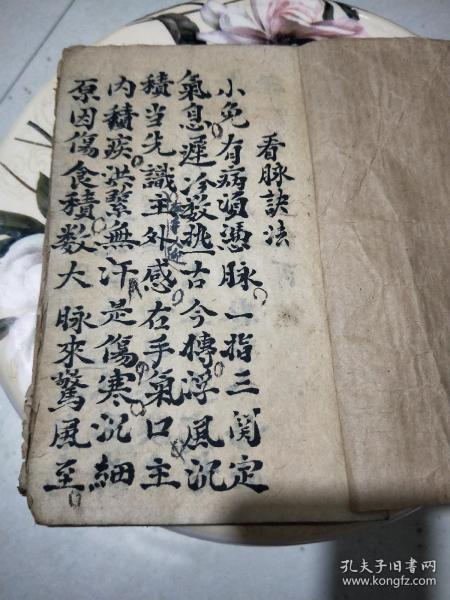 看脉訣法
小免有病須憑脉一指三関定
氣息遲冷数热古今傳浮風沉
積当先識左手人迎主外感右手氣口主
内積疾洪緊無汗是傷寒沉細
原因傷食積数大脉來驚風至
孔夫子旧书网
www.kongfz.com